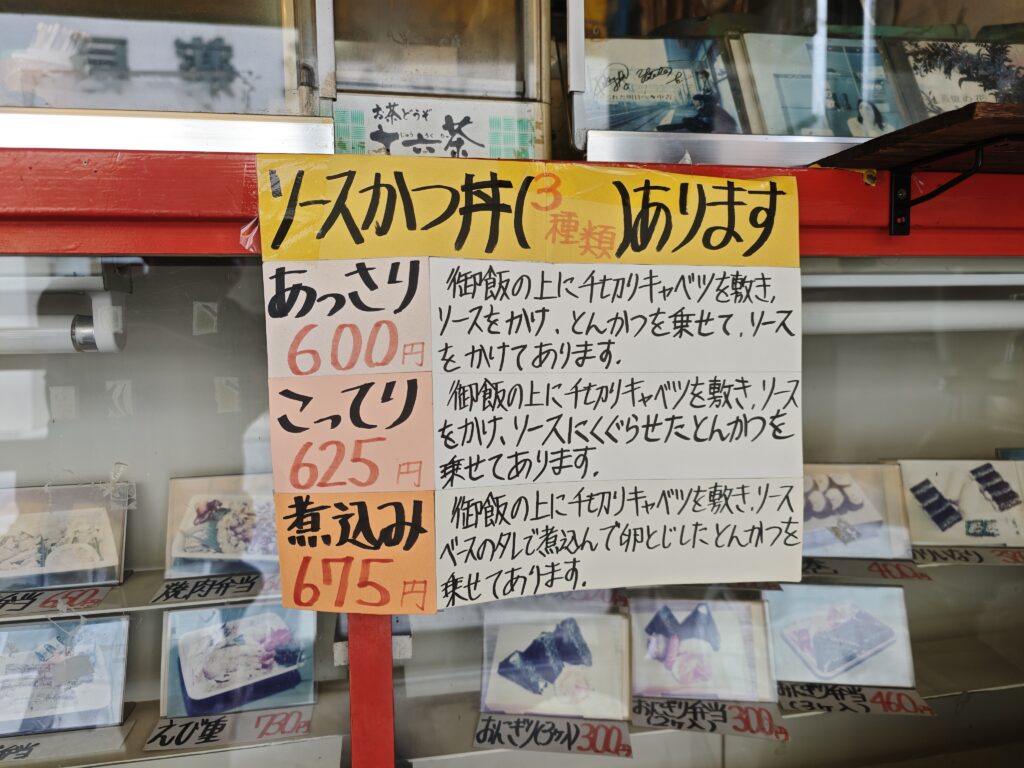 お茶どうぞ
十六茶
ソースかつ丼(3種類)あります
あっさり
600円
御飯の上に千切りキャベツを敷き,
ソースをかけ、とんかつを乗せて、ソース
をかけてあります.
こってり
625円
御飯の上に千切りキャベツを敷き、ソース
をかけ、ソースにくぐらせたとんかつを
乗せてあります.
煮込み
675円
御飯の上に千切りキャベツを敷き、ソース
ベースのタレで煮込んで卵とじしたとんかつを
乗せてあります.
弁当 650
焼肉弁当
400円
えび重 730円
おにぎり(3ヶ入) 300円
おにぎり弁当
(2ヶ入) 300円
おにぎり弁当
(3ヶ入) 460円